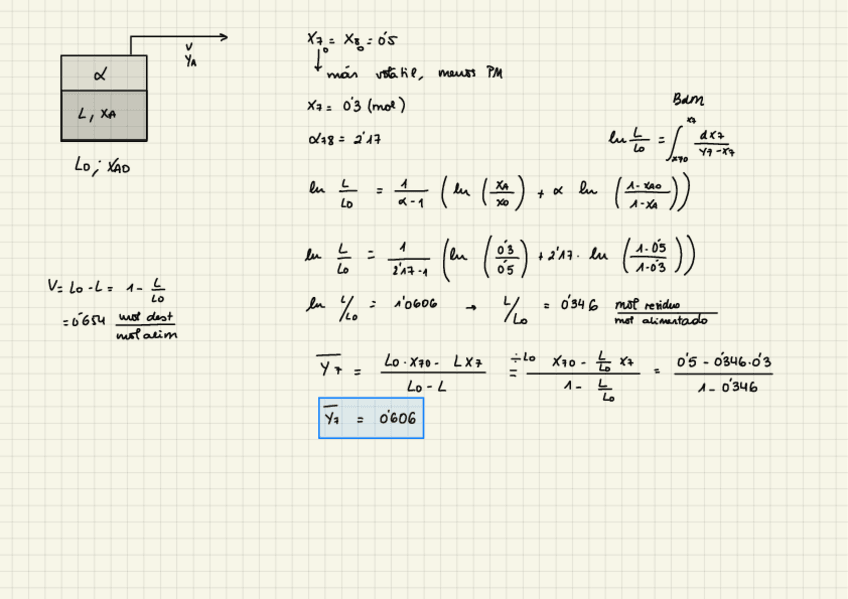 V
YA
α
L, XA
L0; XA0
X7₀ = X8₀ = 0'5
más volátil, menos PM
X7 = 0'3 (mol)
α78 = 2'17
Bdm
ln L/L0 = ∫_{X70}^{X7} dX7/(Y7-X7)
ln L/L0 = 1/(α-1) (ln (XA/X0) + α ln ((1-XA0)/(1-XA)))
ln L/L0 = 1/(2'17-1) (ln (0'3/0'5) + 2'17· ln ((1-0'5)/(1-0'3)))
ln L/L0 = 1'0606 → L/L0 = 0'346 mol residuo/mol alimentado
V = L0 - L = 1 - L/L0
= 0'654 mol dest/mol alim
Y̅7 = (L0·X70 - LX7)/(L0 - L) =^{÷L0} (X70 - L/L0 X7)/(1 - L/L0) = (0'5 - 0'346·0'3)/(1 - 0'346)
Y̅7 = 0'606